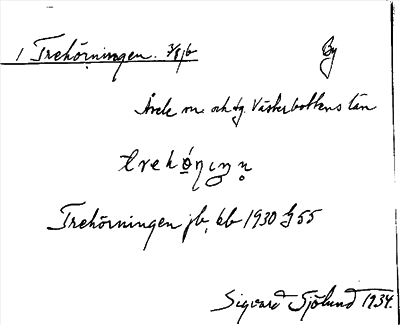 1 Trehörningen. By
Åsele sn. och tg. Västerbottens län
Trehörningen jb, kb 1930 § 55
Sigvard Sjölund 1934.